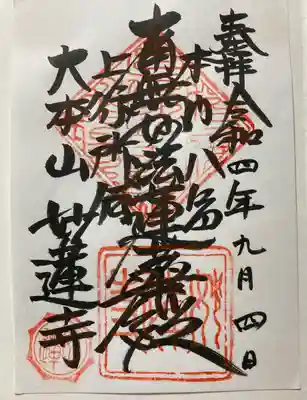 奉拝 令和四年九月四日
本門八品
南無妙法蓮華経
上行所伝
大本山 妙蓮寺